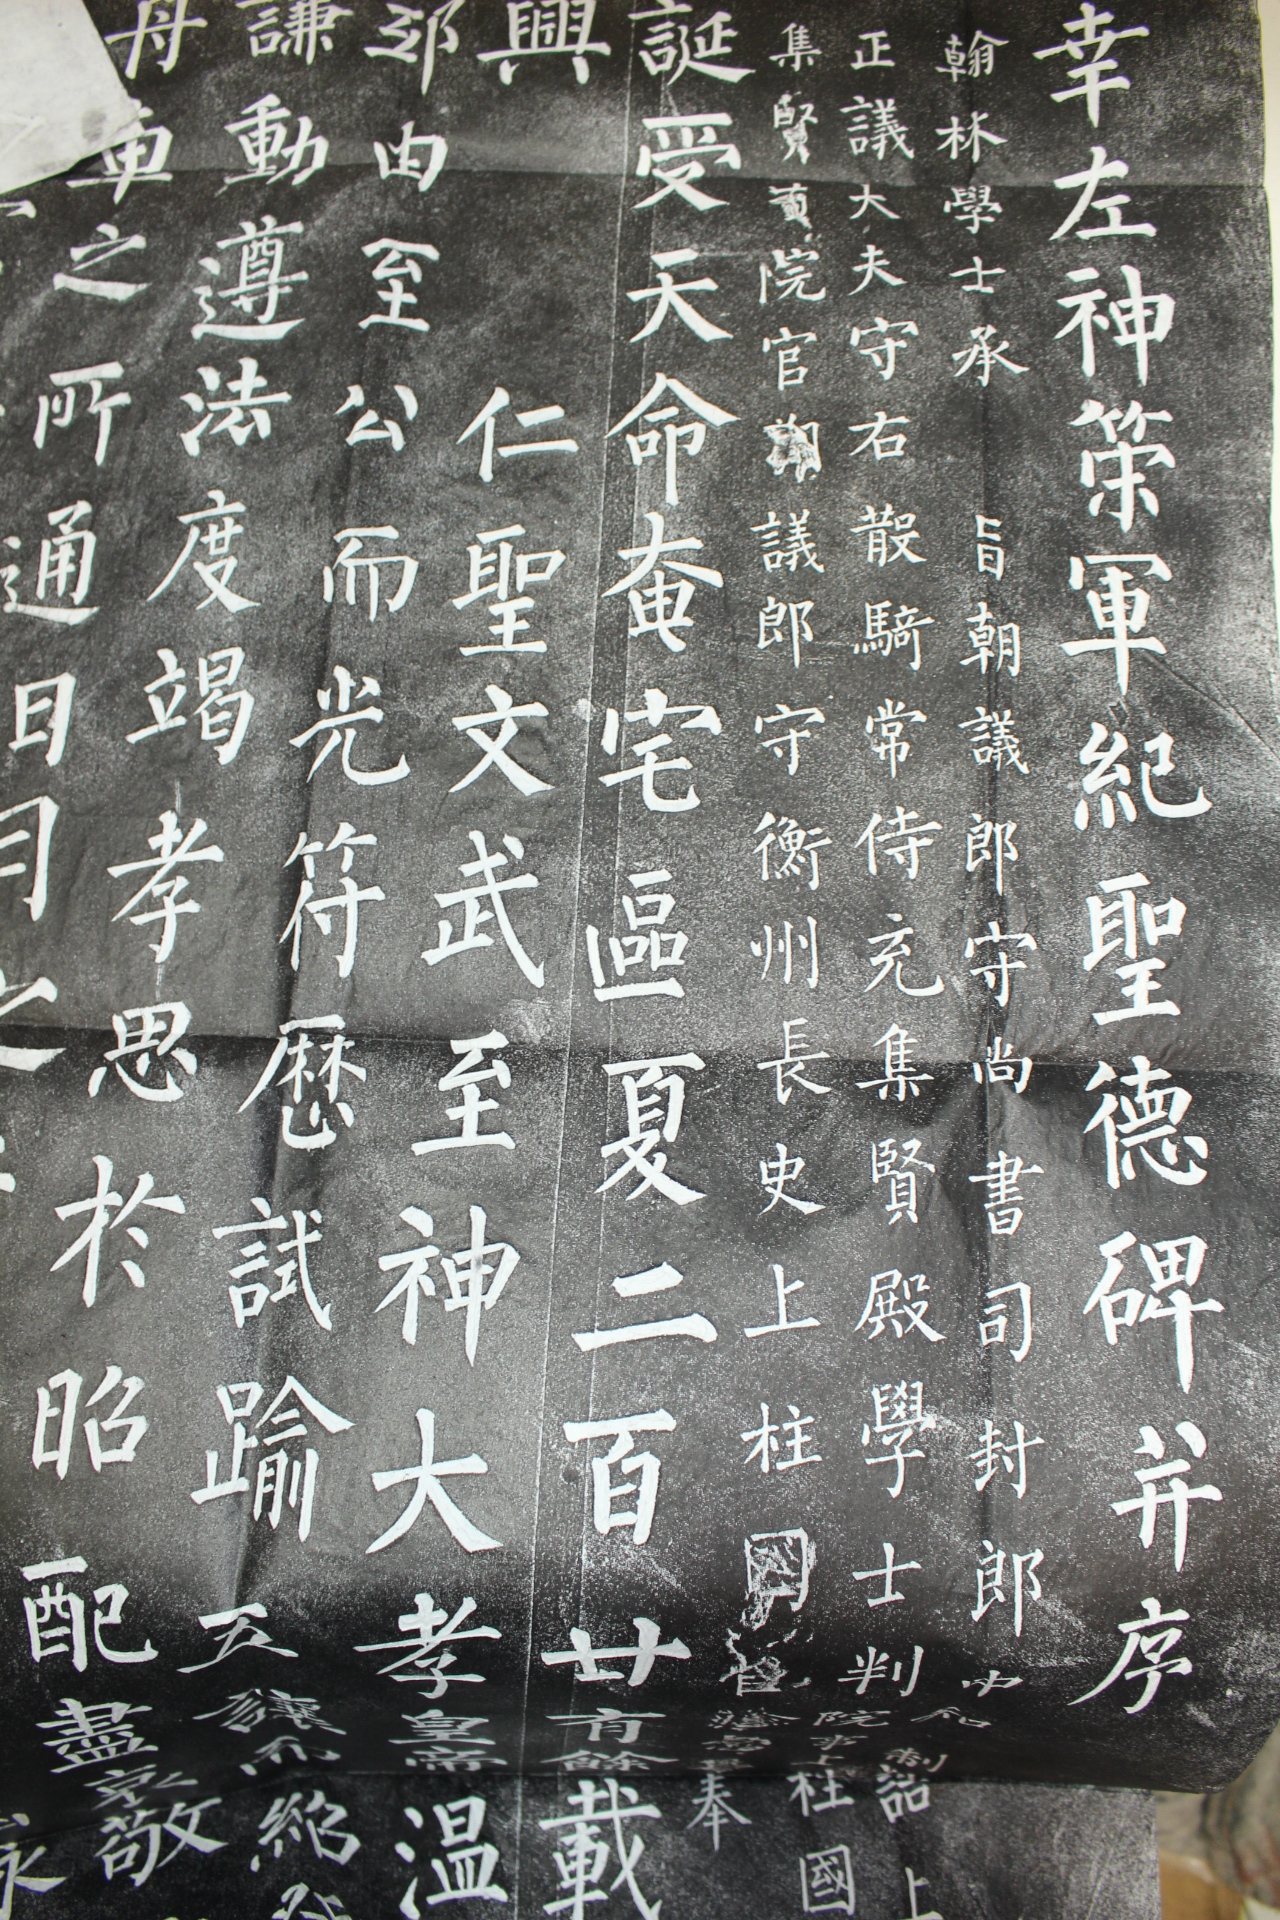 幸左神策軍紀聖德碑并序
翰林學士承旨朝議郎守尚書司封郎中知制誥上
正議大夫守右散騎常侍充集賢殿學士判院事上柱國
集賢直院官朝議郎守衡州長史上柱國
誕受天命奄宅區夏二百廿有餘載
興仁聖文武至神大孝皇帝溫
邸由至公而光符歷試踰五讓而紹登
謙動遵法度竭孝思於昭配盡哀敬
舟車之所通日月之